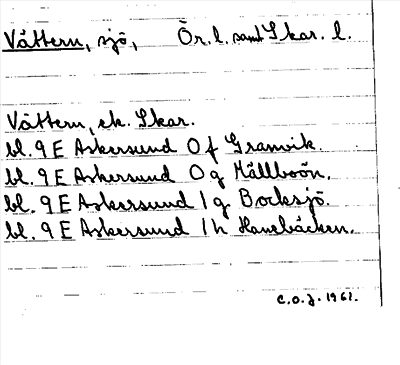 Vättern, sjö, Ör. l. samt Skar. l.
Vättern, ek. Skar.
bl. 9 E Askersund 0 f Granvik.
bl. 9 E Askersund 0 g Hällboön.
bl. 9 E Askersund 1 g Bocksjö.
bl. 9 E Askersund 1 h Hanebäcken.
C.O.J. 1961.